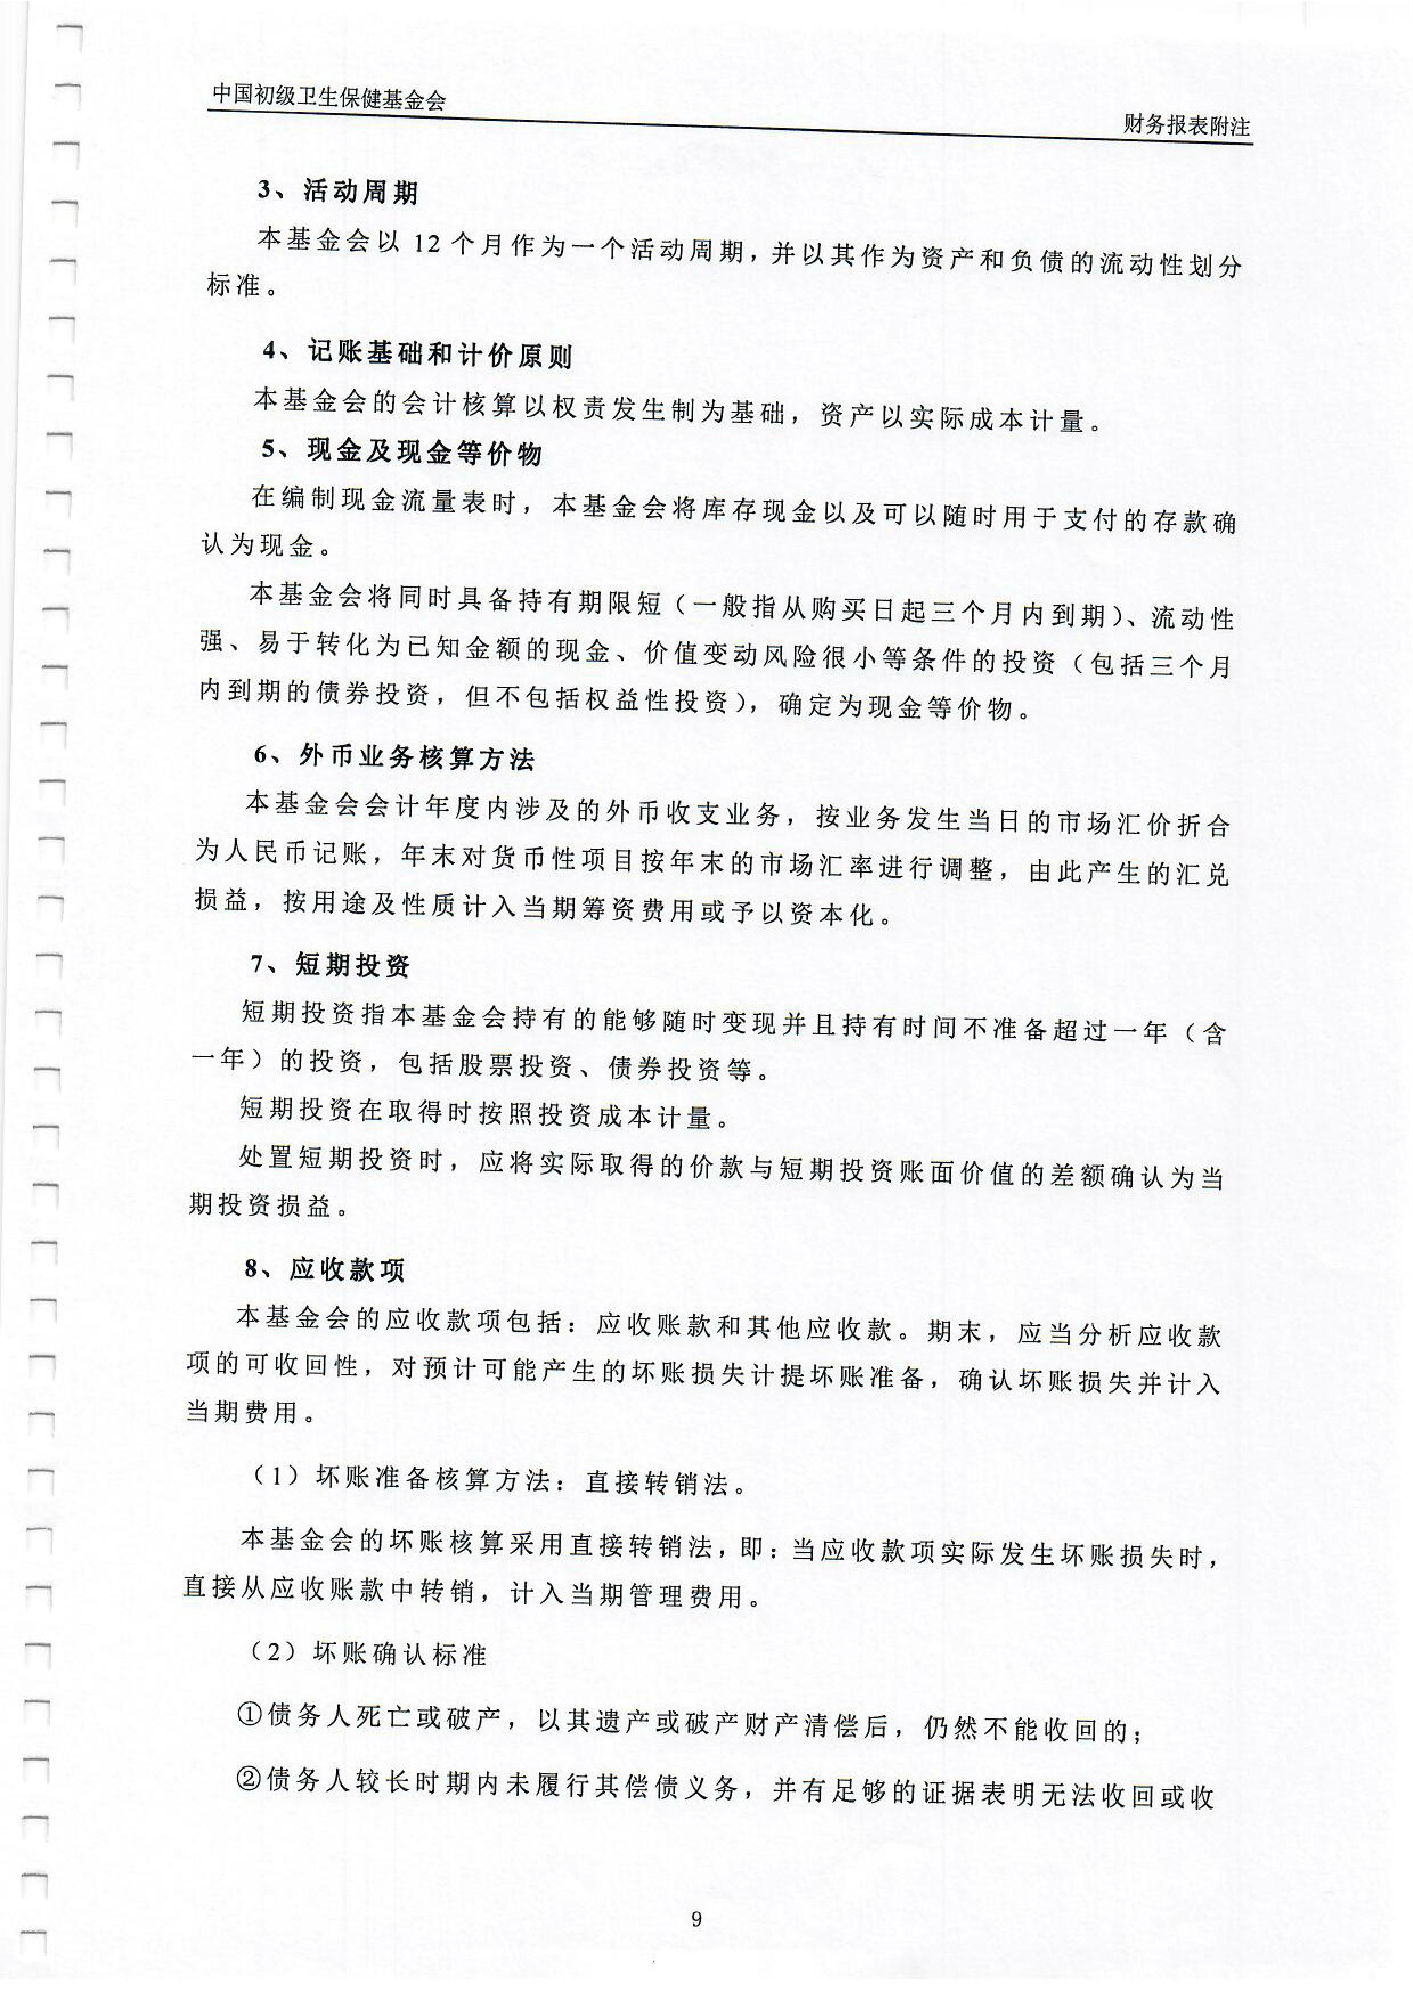 中国初级卫生保健基金会
财务报表附注
3、活动周期
本基金会以 12 个月作为一个活动周期，并以其作为资产和负债的流动性划分
标准。
4、记账基础和计价原则
本基金会的会计核算以权责发生制为基础，资产以实际成本计量。
5、现金及现金等价物
在编制现金流量表时，本基金会将库存现金以及可以随时用于支付的存款确
认为现金。
本基金会将同时具备持有期限短（一般指从购买日起三个月内到期）、流动性
强、易于转化为已知金额的现金、价值变动风险很小等条件的投资（包括三个月
内到期的债券投资，但不包括权益性投资），确定为现金等价物。
6、外币业务核算方法
本基金会会计年度内涉及的外币收支业务，按业务发生当日的市场汇价折合
为人民币记账，年末对货币性项目按年末的市场汇率进行调整，由此产生的汇兑
损益，按用途及性质计入当期筹资费用或予以资本化。
7、短期投资
短期投资指本基金会持有的能够随时变现并且持有时间不准备超过一年（含
一年）的投资，包括股票投资、债券投资等。
短期投资在取得时按照投资成本计量。
处置短期投资时，应将实际取得的价款与短期投资账面价值的差额确认为当
期投资损益。
8、应收款项
本基金会的应收款项包括：应收账款和其他应收款。期末，应当分析应收款
项的可收回性，对预计可能产生的坏账损失计提坏账准备，确认坏账损失并计入
当期费用。
（1）坏账准备核算方法：直接转销法。
本基金会的坏账核算采用直接转销法，即：当应收款项实际发生坏账损失时，
直接从应收账款中转销，计入当期管理费用。
（2）坏账确认标准
①债务人死亡或破产，以其遗产或破产财产清偿后，仍然不能收回的；
②债务人较长时期内未履行其偿债义务，并有足够的证据表明无法收回或收
9